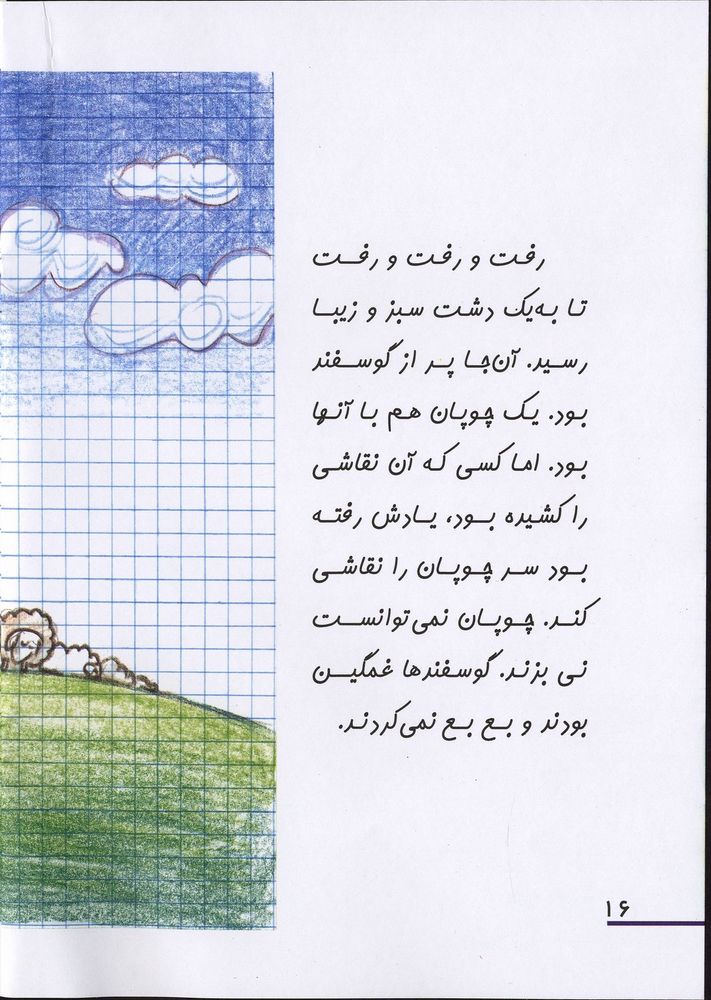 رفت و رفت و رفت
تا به‌یک دشت سبز و زیبا
رسید. آن‌جا پر از گوسفند
بود. یک چوپان هم با آنها
بود. اما کسی که آن نقاشی
را کشیده بود، یادش رفته
بود سر چوپان را نقاشی
کند. چوپان نمی‌توانست
نی بزند. گوسفندها غمگین
بودند و بع بع نمی‌کردند.
۱۶